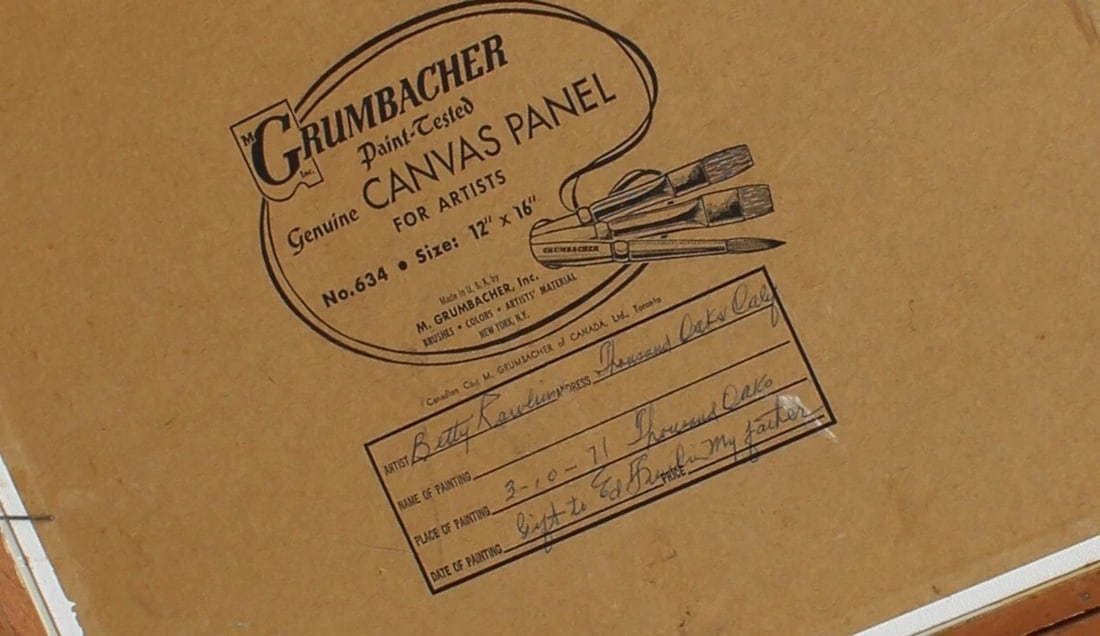 M. GRUMBACHER Inc.
Paint-Tested
Genuine CANVAS PANEL
FOR ARTISTS
No.634 • Size: 12" x 16"
GRUMBACHER
Made in U.S.A. by
M. GRUMBACHER, Inc.
BRUSHES • COLORS • ARTISTS' MATERIAL
NEW YORK, N.Y.
Canadian Co.: M. GRUMBACHER of CANADA, Ltd., Toronto
ARTIST Betty ADDRESS Thousand Oaks Calif
NAME OF PAINTING
PLACE OF PAINTING 3-10-71 Thousand Oaks
DATE OF PAINTING Gift to Ed PRICE My father